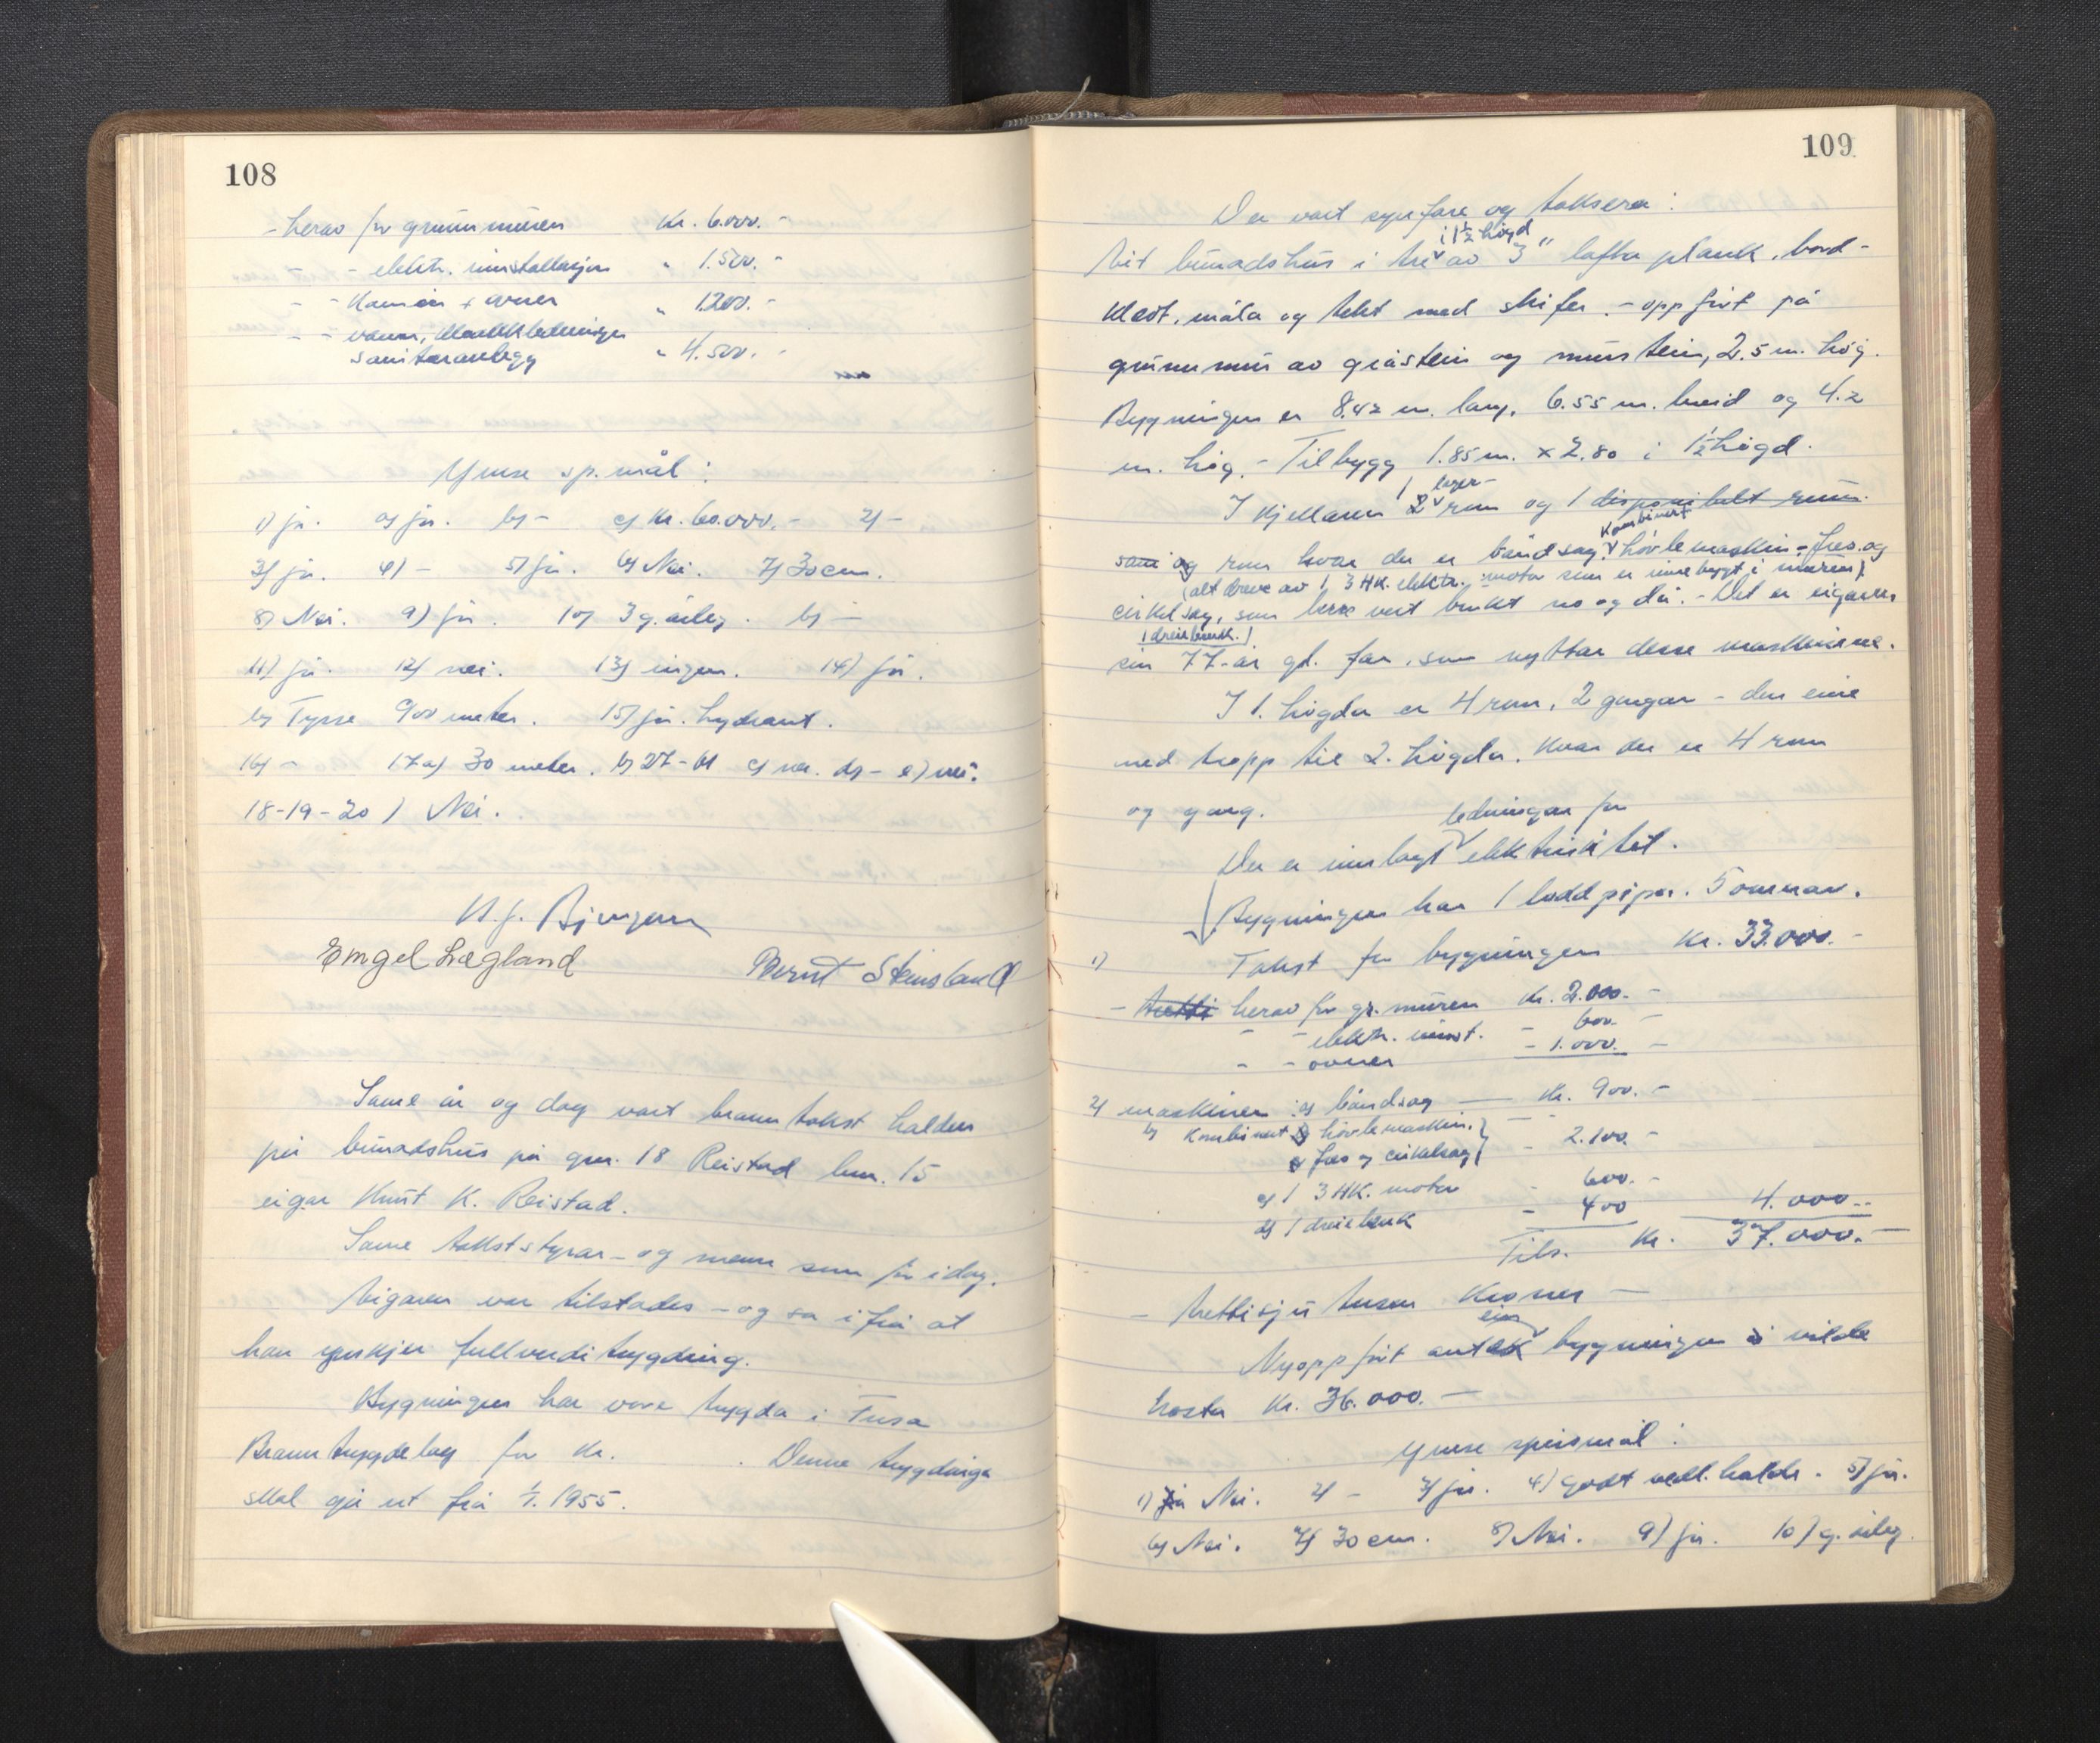 108
- herav for grunnmuren Kr. 6.000.-
- - elektr. innstallasjon " 1.500.-
- - Kamin + ovner " 1.200.-
- - vann, kloakkledninger
sanitæranlegg " 4.500.-
Ymse sp.mål:
1) ja. a) ja. b) - c) Kr. 60.000.- 2) -
3) ja. 4) - 5) ja. 6) Nei. 7) 30 cm.
8) Nei. 9) ja. 10) 3 g. årleg. b) -
11) ja. 12) nei. 13) ingen. 14) ja.
b) Tysse 900 meter. 15) ja. hydrant.
16) - 17 a) 30 meter. b) 27-61 c) nei. d) - e) nei.
18-19-20) Nei.
Engel Lægland
Bernt Steinsland
Same år og dag vart branntakst halden
på bunadshus på gnr. 18 Reistad bnr. 15
eigar Knut K. Reistad.
Same takststyrar - og menn som før i dag.
Eigaren var tilstades - og sa ifrå at
han ynskjer fullverdi trygding.
Bygningen har vore trygda i Fusa
Branntrygdelag for Kr. . Denne trygdinga
skal gå ut frå 1/1. 1955.
109
Der vart synfare og taksera:
i 1 1/2 høgd
Eit bunadshus i tre av 3" lafta plank, bord-
kledt, måla og tekt med skifer. - oppført på
grunnmur av gråstein og murstein, 2.5 m. høg.
Bygningen er 8.42 m. lang, 6.55 m. breid og 4.2
m. høg. - Tilbygg 1.85 m. x 2.80 i 1 1/2 høgd.
1 lager-
I kjellaren 2 rom og 1 disponibelt rum
kombinert
som og rom kvar der er båndsag, høvlemaskin - fres og
(alt dreve av 1, 3 HK. elektr. motor som er innebygt i muren).
cirkelsag, som berre vert brukt no og då. - Det er eigaren
1 dreiebenk.)
sin 77-år gl. far, som nyttar desse maskinene.
I 1. høgda er 4 rom, 2 gangar - den eine
med tropp til 2. høgda, kvar der er 4 rom
og gang.
ledningar for
Der er innlagt elektrisitet.
Bygningen har 1 lodd pipa. 5 omnar.
1) Takst for bygningen Kr. 33.000.-
- tretti herav for gr. muren Kr. 2.000.-
- - elektr. innst. - 600.-
- - ovner - 1.000.-
2) maskiner: a) båndsag - Kr. 900.-
b) Kombinert høvlemaskin,
fres og cirkelsag - 2.100.-
c) 1 3 HK. motor - 600.-
d) 1 dreiebenk - 400 4.000.-
Tils. Kr. 37.000.-
- trettisju tusen Kroner -
ein
Nyoppført antek bygningen å vilde
kosta Kr. 36.000.-
Ymse spursmål:
1) ja Nei. 2) - 3) ja. 4) godt vedl. halde. 5) ja.
6) Nei. 7) 30 cm. 8) Nei. 9) ja. 10) g. årleg.